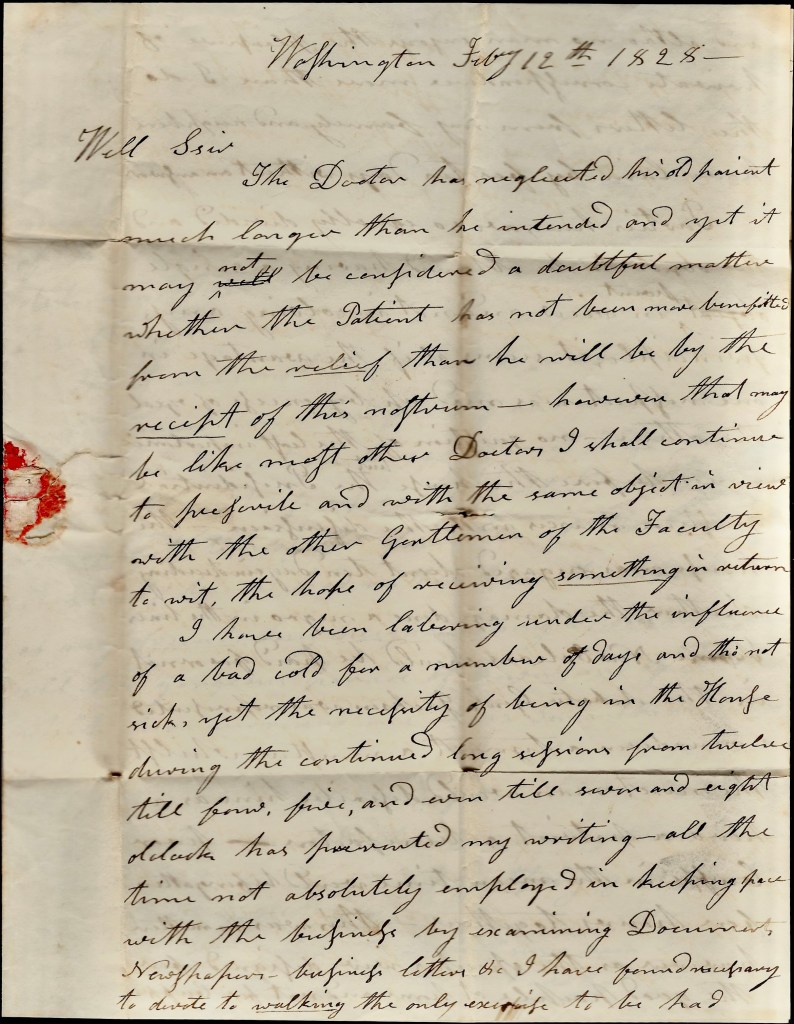 Washington Feby 12th 1828—
Well Ssir
The Doctor has neglected his old patient
much longer than he intended and yet it
may not well be considered a doubtful matter
whether the Patient has not been more benefitted
from the relief than he will be by the
recipt of this nostrum — however that may
be like most other Doctors I shall continue
to prescribe and with the same object in view
with the other Gentlemen of the Faculty
to wit, the hope of receiving something in return
I have been laboring under the influence
of a bad cold for a number of days and tho not
sick, yet the necessity of being in the House
during the continued long sessions from twelve
till four, five, and even till seven and eight
oclock has prevented my writing — all the
time not absolutely employed in keeping pace
with the business by examining Documents
Newspapers — business letters &c I have found necessary
to devote to walking the only exercise to be had